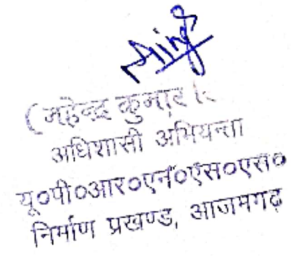 (महेन्द्र कुमार
अधिशासी अभियन्ता
यू०पी०आर०एन०एस०एस०
निर्माण प्रखण्ड, आजमगढ़